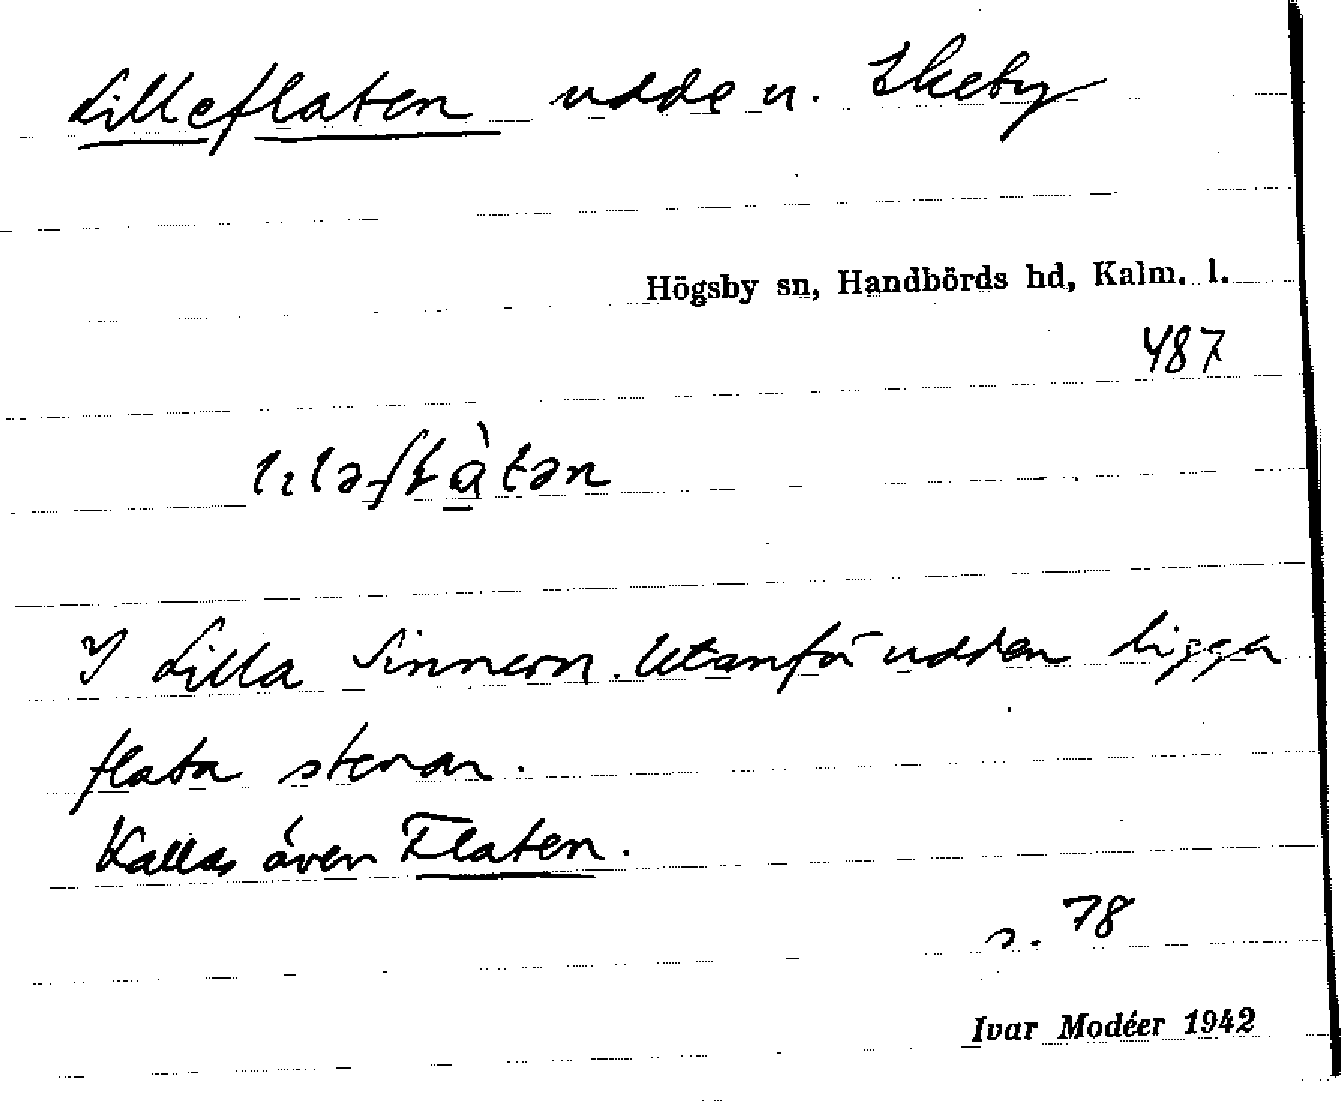 Lilleflaten udde u. Ekeby
Högsby sn, Handbörds hd, Kalm. l.
487
I Lilla Sinnern. Utanför udden ligga
flata stenar.
Kallas även Flaten.
s. 78
Ivar Modéer 1942